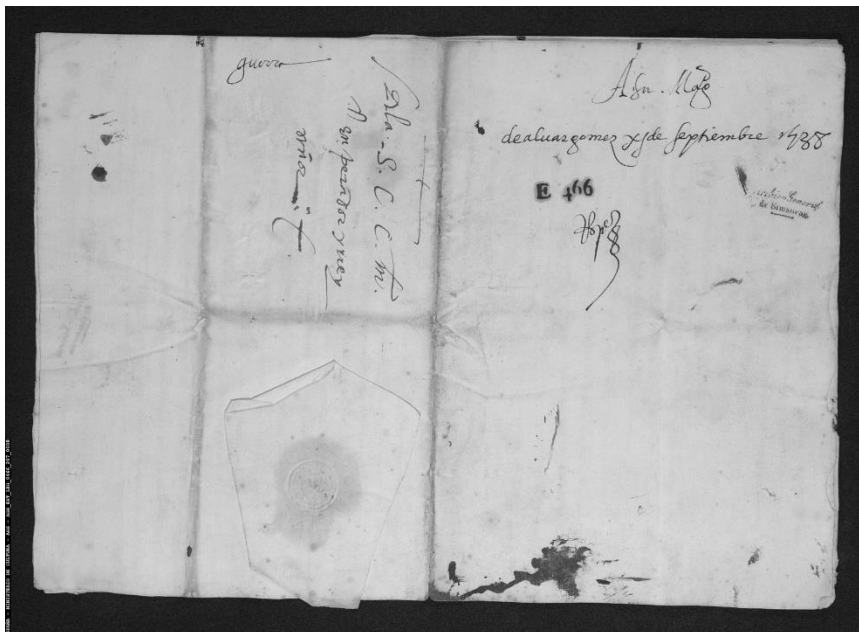 guerra
A la . S. C. C. M.
Emperador y rey
señor
A su . Mag
de aluar gomez xj de septiembre 1538
E 466
Archivo General
de Simancas